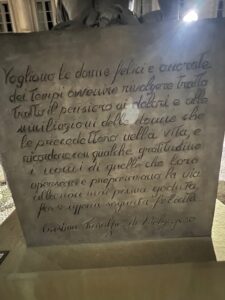 Vogliano le donne felici e onorate
dei tempi avvenire rivolgere tratto
tratto il pensiero ai dolori e alle
umiliazioni delle donne che
le precedettero nella vita, e
ricordare con qualche gratitudine
i nomi di quelle che loro
apersero e prepararono la via
alla non mai prima goduta,
forse appena sognata felicità
Cristina Trivulzio di Belgiojoso